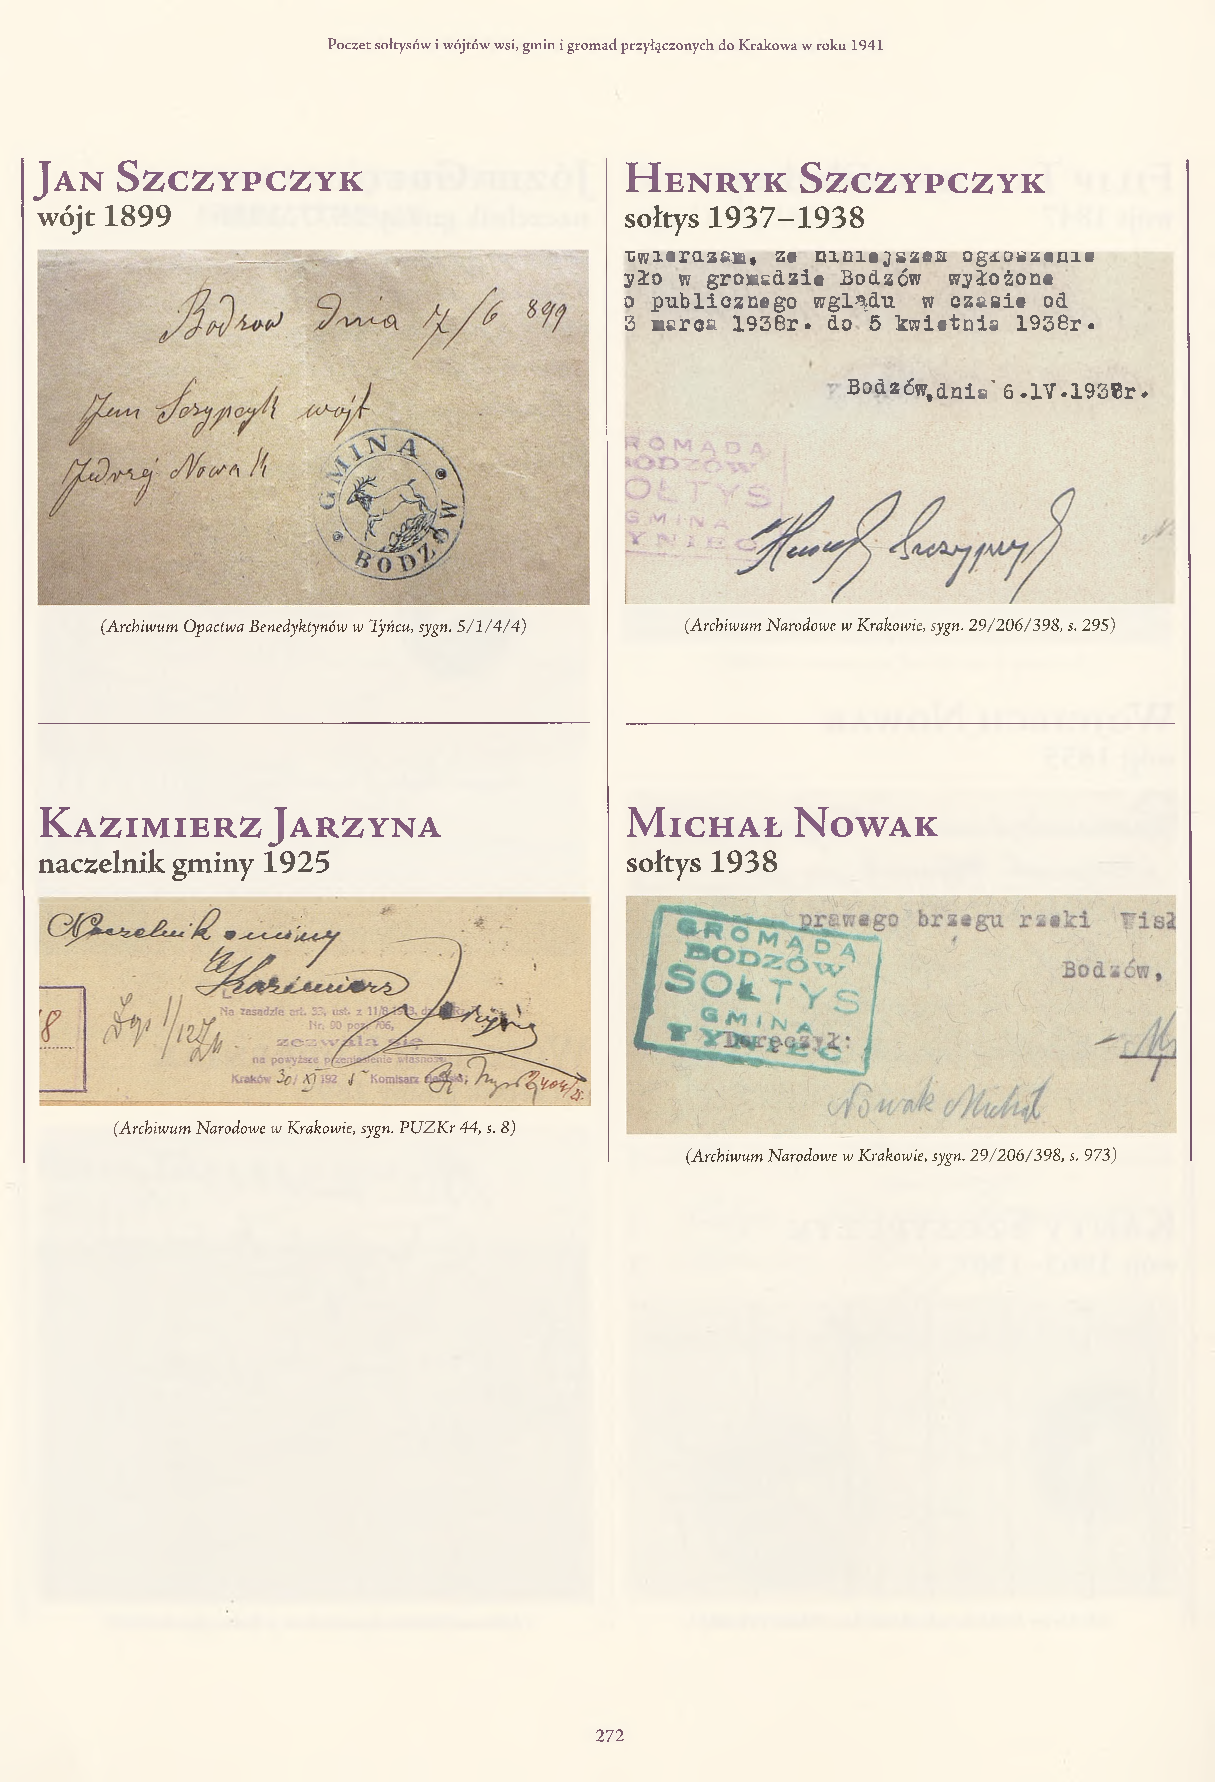 Poczet sołtysów i wójtów wsi, gmin i gromad przyłączonych do Krakowa w roku 1941
Jan Szczypczyk
wójt 1899
Bodzow dnia 17/6 899
Jan Sczypczyk wójt
Jędrzej Nowak
GMINA
BODZÓW
(Archiwum Opactwa Benedyktynów w Tyńcu, sygn. 5/1/4/4)
Kazimierz Jarzyna
naczelnik gminy 1925
Naczelnik gminy
Kazimierz
Jarzyna
8
Na zasadzie ust. z
Nr. 90 poz. 706,
zezwala się
na powyższe przeniesienie własności
Kraków 30/XI 192 5 Komisarz
(Archiwum Narodowe w Krakowie, sygn. PUZKr 44, s. 8)
Henryk Szczypczyk
sołtys 1937–1938
twierdzam, że niniejszem ogłoszenie
yło w gromadzie Bodzów wyłożone
o publicznego wglądu w czasie od
3 marca 1938r. do 5 kwietnia 1938r.
Bodzów,dnia 6.IV.1938r.
ROMADA
BODZÓW
OŁTYS
GMINA
YNIEC
Henryk Szczypczyk
(Archiwum Narodowe w Krakowie, sygn. 29/206/398, s. 295)
Michał Nowak
sołtys 1938
prawego brzegu rzeki Wisł
Bodzów,
GROMADA
BODZÓW
SOŁTYS
GMINA
TYNIEC
Doręczył:
Nowak Michał
(Archiwum Narodowe w Krakowie, sygn. 29/206/398, s. 973)
272